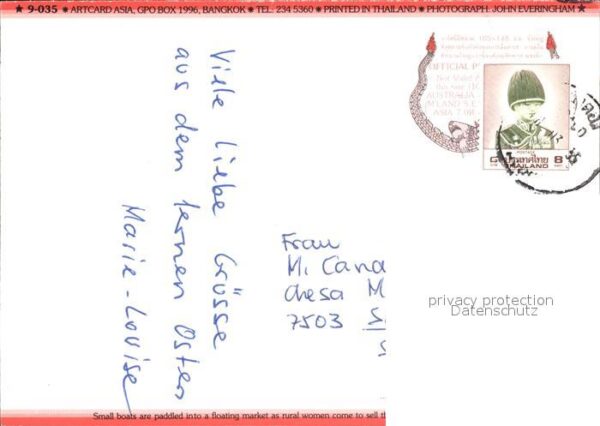 ★ 9-035 ★ ARTCARD ASIA, GPO BOX 1996, BANGKOK ★ TEL: 234 5360 ★ PRINTED IN THAILAND ★ PHOTOGRAPH: JOHN EVERINGHAM ★
OFFICIAL P
Not Valid
AUSTRALIA
ASIA 7.00
ประเทศไทย
8
THAILAND
Viele liebe Grüsse
aus dem fernen Osten
Marie-Louise
Frau
M. Cana
Chesa M
7503
privacy protection
Datenschutz
Small boats are paddled into a floating market as rural women come to sell th